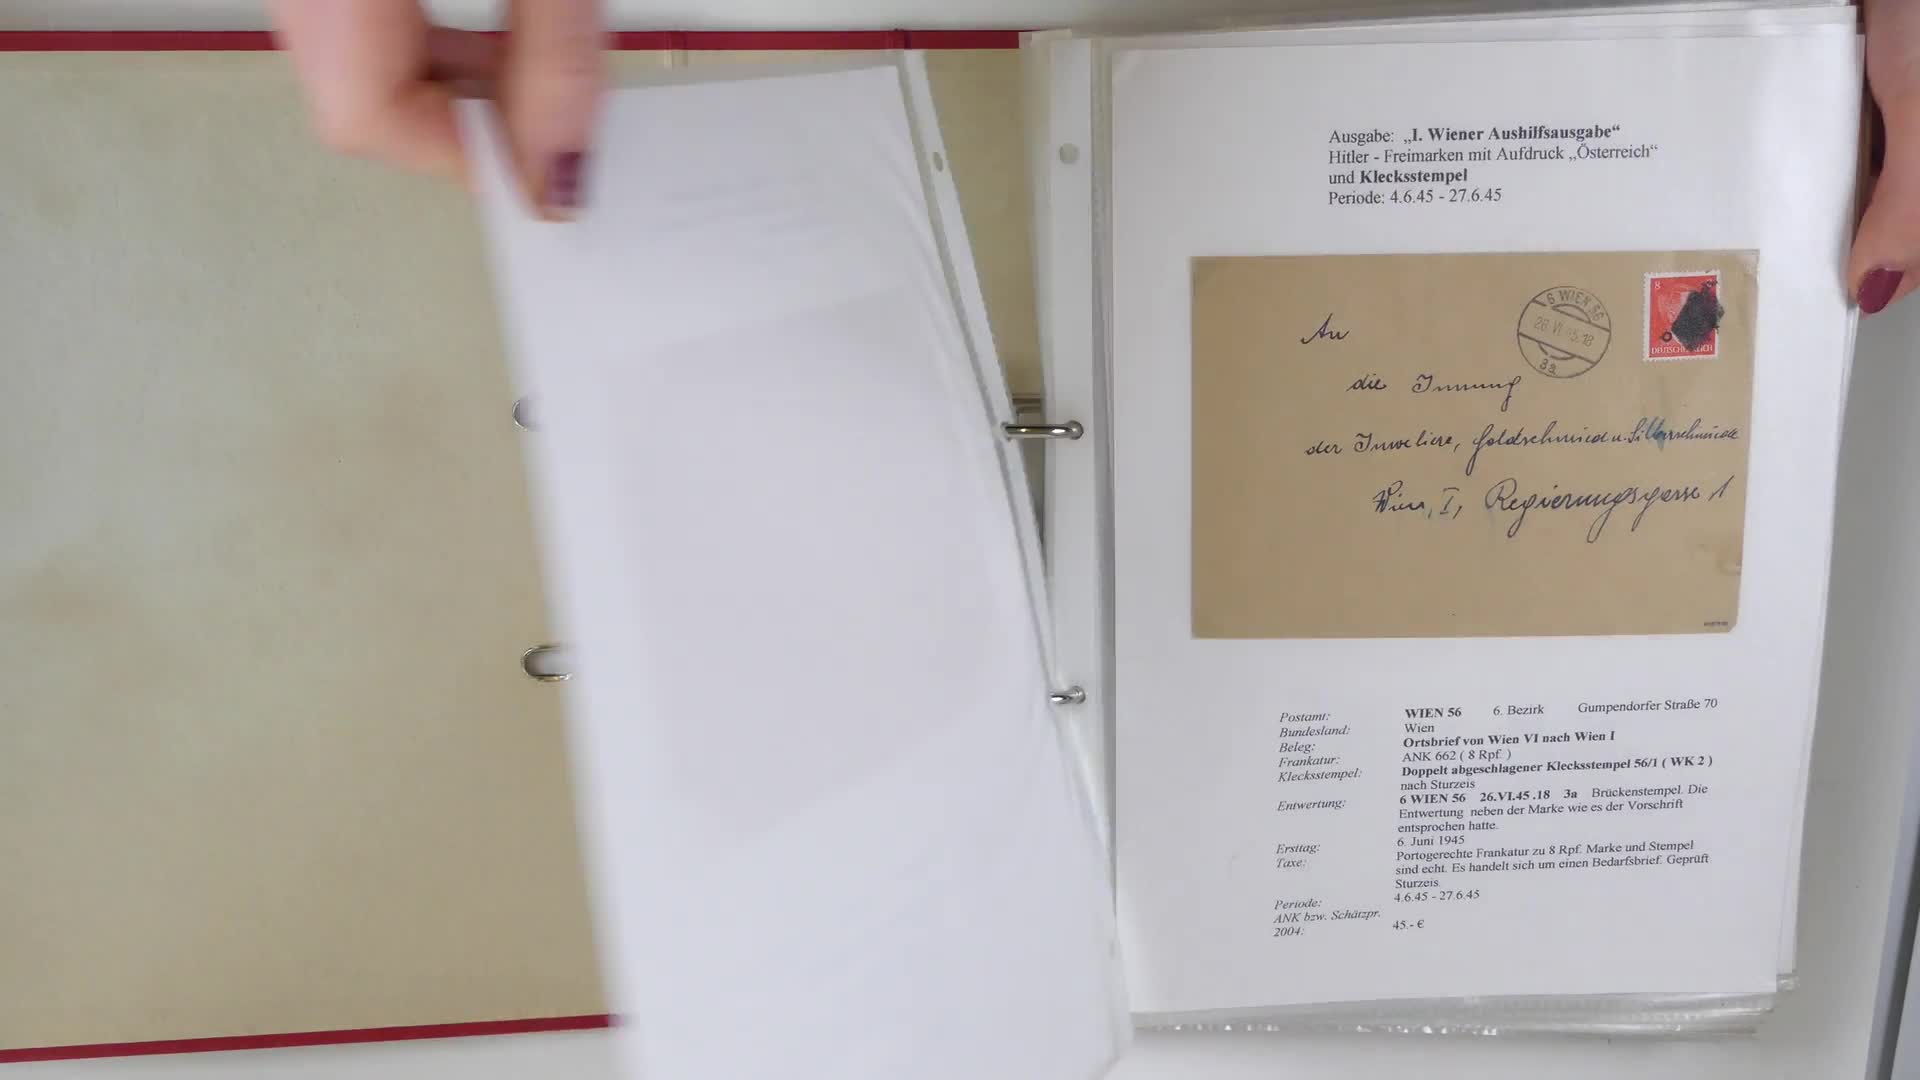 Ausgabe: „I. Wiener Aushilfsausgabe“
Hitler - Freimarken mit Aufdruck „Österreich“
und Klecksstempel
Periode: 4.6.45 - 27.6.45
8
6 WIEN 56
26.VI.45.18
3a
An
die Innung
der Juweliere, Goldschmied u. Silberschmiede
Wien, I, Regierungsgasse 1
Postamt: WIEN 56 6. Bezirk Gumpendorfer Straße 70
Bundesland: Wien
Beleg: Ortsbrief von Wien VI nach Wien I
Frankatur: ANK 662 ( 8 Rpf. )
Klecksstempel: Doppelt abgeschlagener Klecksstempel 56/1 ( WK 2 )
nach Sturzeis
Entwertung: 6 WIEN 56 26.VI.45 .18 3a Brückenstempel. Die
Entwertung neben der Marke wie es der Vorschrift
entsprochen hatte.
Ersttag: 6. Juni 1945
Taxe: Portogerechte Frankatur zu 8 Rpf. Marke und Stempel
sind echt. Es handelt sich um einen Bedarfsbrief. Geprüft
Sturzeis.
Periode: 4.6.45 - 27.6.45
ANK bzw. Schätzpr.
2004: 45.- €